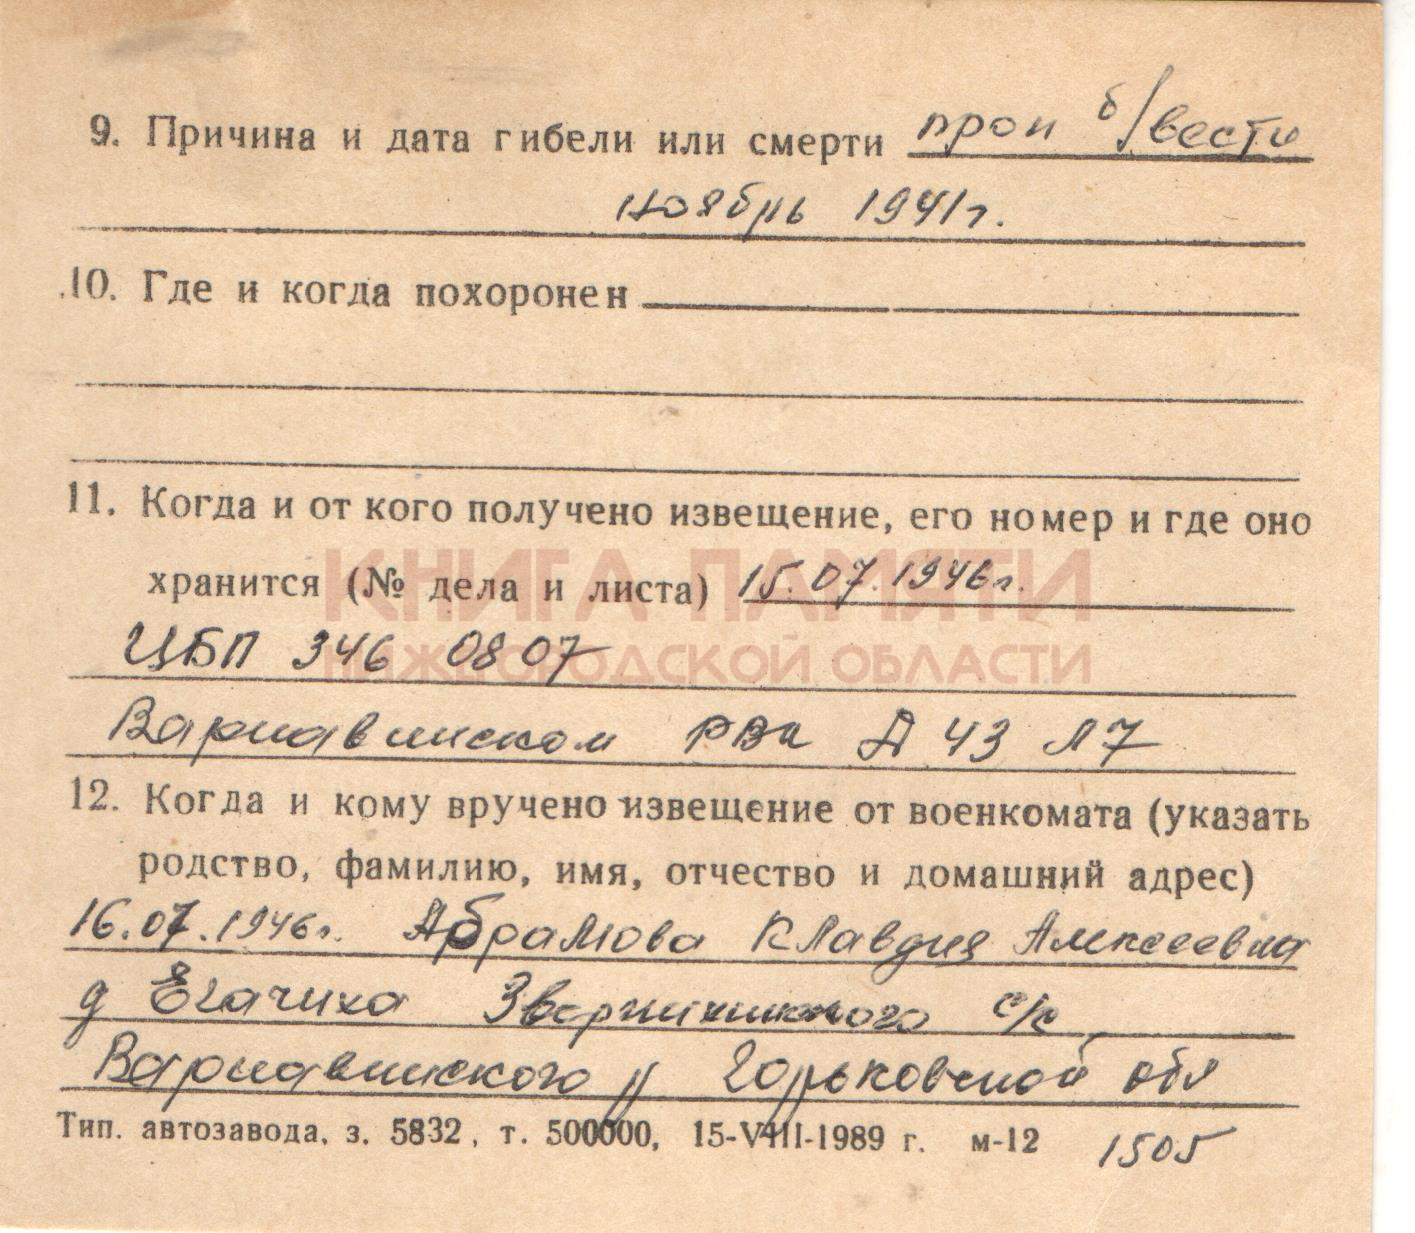 9. Причина и дата гибели или смерти проп б/вести
ноябрь 1941г.
10. Где и когда похоронен
11. Когда и от кого получено извещение, его номер и где оно
хранится (№ дела и листа) 15.07.1946г.
КНИГА ПАМЯТИ
НИЖЕГОРОДСКОЙ ОБЛАСТИ
ЦБП 346 0807
Варнавинском РВк Д 43 Л7
12. Когда и кому вручено извещение от военкомата (указать
родство, фамилию, имя, отчество и домашний адрес)
16.07.1946г. Абрамова Клавдия Алексеевна
д Егачиха с/с
Варнавинского р Горьковской обл
Тип. автозавода, з. 5832, т. 500000, 15-VIII-1989 г. м-12 1505